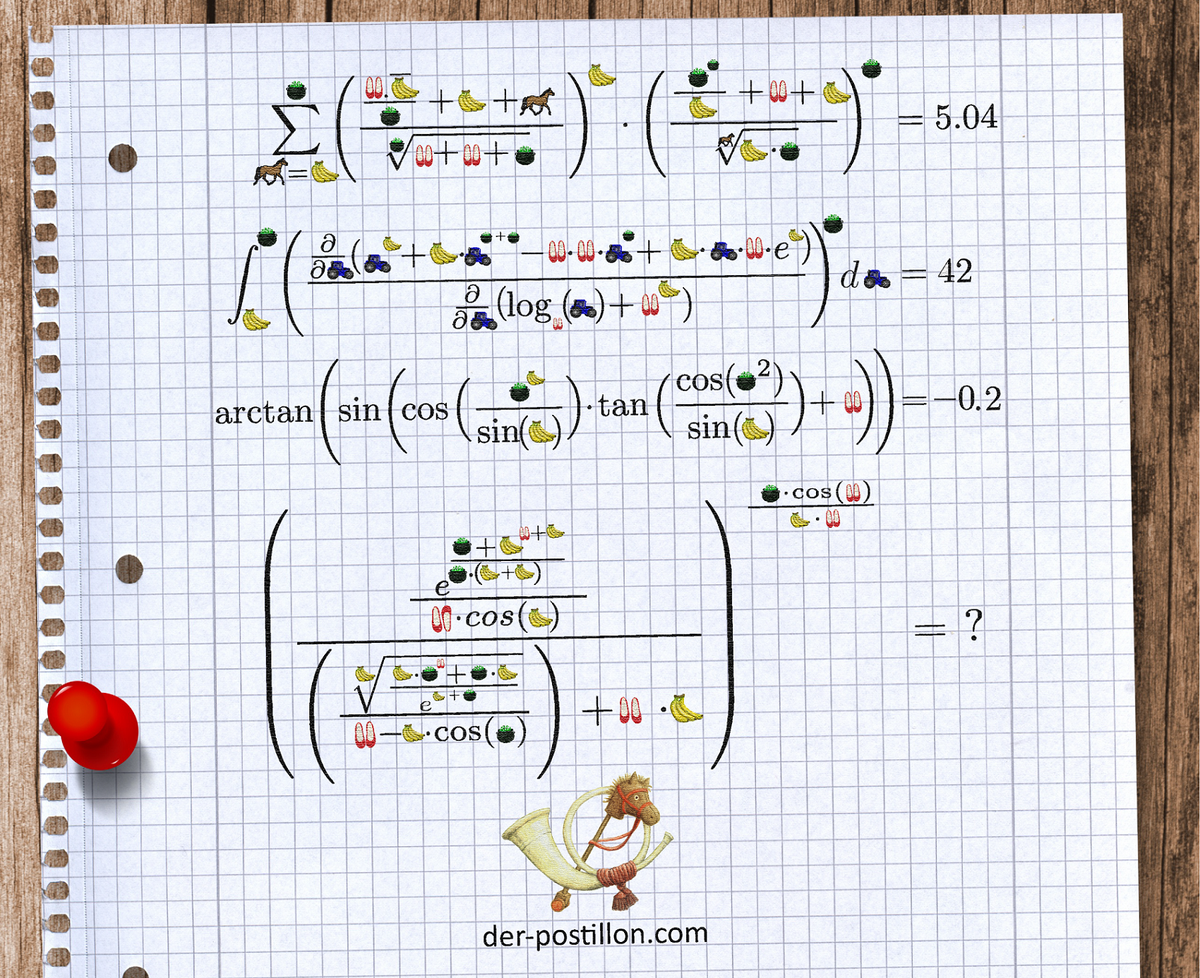 ∑ (🐎=🍌 … 🪴) ((👠·🍌/🪴 + 🍌 + 🐎) / ᷾🪴√(👠 + 👠 + 🪴))^🍌 · ((🪴^🪴/🍌 + 👠 + 🍌) / 🐎√(🍌·🪴))^🪴 = 5.04
∫ (🍌 … 🪴) (∂/∂🚜(🚜^🍌 + 🍌·🚜^(🪴+🪴) − 👠·👠·🚜^🪴 + 🍌·🚜·👠·e^🍌) / ∂/∂🚜(log_👠(🚜) + 👠^🍌))^🪴 d🚜 = 42
arctan(sin(cos(🪴^🍌/sin(🍌))·tan(cos(🪴^2)/sin(🍌)) + 👠)) = −0.2
((e^((🪴+🍌^(👠+🍌))/(🪴·(🍌+🍌))) / (👠·cos(🍌))) / ((🍌√((🍌·🪴^👠 + 🪴·🍌)/e^(🍌+🪴)) / (👠−🍌·cos(🪴))) + 👠·🍌))^(🪴·cos(👠)/(🍌·👠)) = ?
der-postillon.com